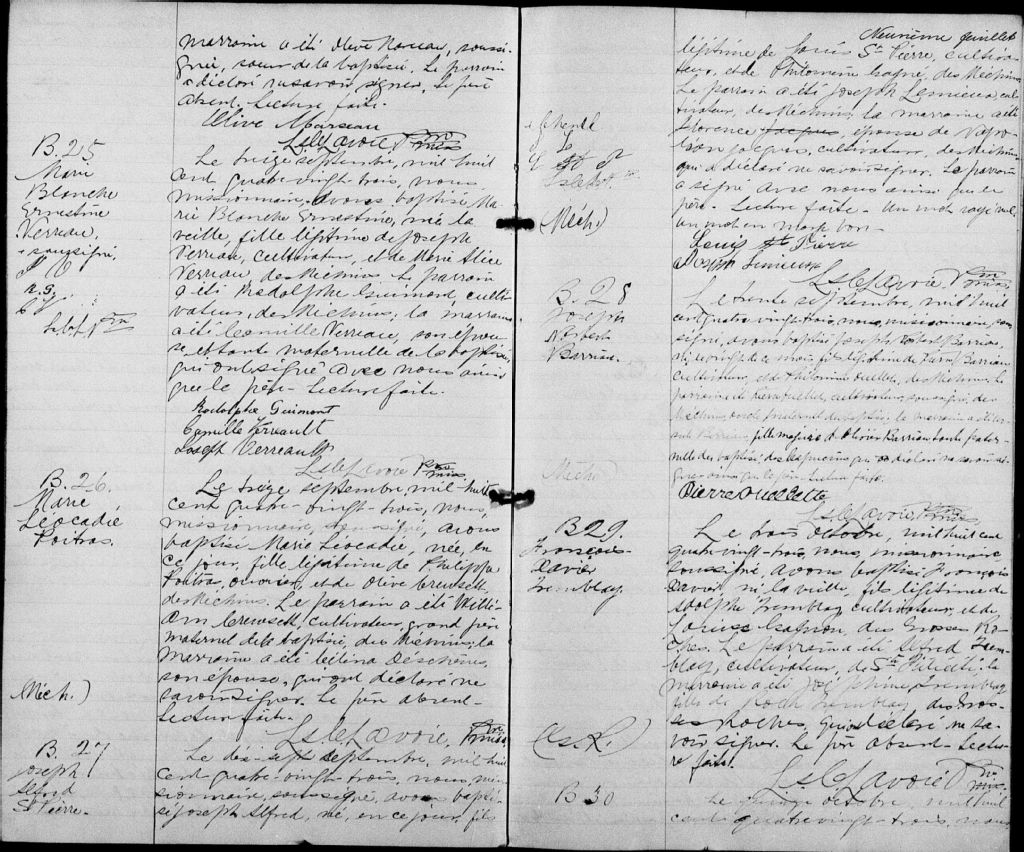 marraine a été Olive Marceau, soussi-
gnée, soeur de la baptisée. Le parrain
a déclaré ne savoir signer. Le père
absent. Lecture faite.
Olive Marseau
Ls. LeLavoie Ptre miss.
B. 25
Marie
Blanche
Ernestine
Verreau.
Le treize septembre, mil huit
cent quatre-vingt-trois, nous,
missionnaire, avons baptisé Ma-
rie Blanche Ernestine, née la
veille, fille légitime de Joseph
Verreau, cultivateur, et de Marie Alice
Verreau des Méchins. Le parrain
a été Rodolphe Guimond, culti-
vateur, des Méchins; la marraine
a été Camille Verreau, son épou-
se, et tante maternelle de la baptisée,
qui ont signé avec nous ainsi
que le père. Lecture faite.
Rodolphe Guimont
Camille Verreault
Joseph Verreault
Ls. LeLavoie Ptre miss.
B. 26.
Marie
Léocadie
Poitras.
Le treize septembre, mil-huit
cent quatre-vingt-trois, nous,
missionnaire, soussigné, avons
baptisé Marie Léocadie, née, en
ce jour, fille légitime de Philippe
Poitras, ouvrier, et de Olive
des Méchins. Le parrain a été Willi-
am cultivateur, grand père
maternel de la baptisée, des Méchins; la
marraine a été Célina Deschênes,
son épouse, qui ont déclaré ne
savoir signer. Le père absent.
Lecture faite.
Méch.)
Ls LeLavoie, Ptre miss.
B. 27
Joseph
Alfred
St Pierre.
Le dix-sept septembre, mil huit
cent quatre-vingt-trois, nous, mis-
sionnaire, soussigné, avons bapti-
sé Joseph Alfred, né, en ce jour, fils
Neuvième feuillet
légitime de Louis St Pierre, cultiva-
teur, et de Philomène Gagné, des Méchins.
Le parrain a été Joseph Lemieux, cul-
tivateur, des Méchins; la marraine a été
Florence épouse de Napo-
léon Jacques, cultivateur, des Méchins
qui a déclaré ne savoir signer. Le parrain
a signé avec nous ainsi que le
père. Lecture faite. Un mot rayé nul,
un mot en marge bon.
(Méch.)
Louis St Pierre
Joseph Lemieux
Ls LeLavoie, Ptre miss.
B. 28
Joseph
Norbert
Barriau.
Le trente septembre, mil huit
cent quatre vingt-trois, nous, missionnaire, sous-
signé, avons baptisé Joseph Norbert Barriau,
né le vingt de ce mois, fils légitime de Barriau
cultivateur, et de Philomène Ouellet, des Méchins. Le
parrain a été Pierre Ouellet, cultivateur, soussigné, des
Méchins, oncle maternel du baptisé; la marraine a été
Barriau, fille majeure de Olivier Barriau tante pater-
nelle du baptisé, des Capucins qui a déclaré ne savoir si-
gner ainsi que le père. Lecture faite.
Méch.)
Pierre Ouellette
Ls LeLavoie Ptre miss.
B 29.
François-
Xavier
Tremblay
Le trois octobre, mil huit cent
quatre vingt-trois, nous, missionnaire
soussigné, avons baptisé François
Xavier, né la veille, fils légitime de
Adolphe Tremblay cultivateur, et de
Louise Gagnon, des Grosses Ro-
ches. Le parrain a été Alfred Trem-
blay, cultivateur, de Ste Félicité; la
marraine a été Joséphine Tremblay
fille de Roch Tremblay des Gros-
ses Roches, qui ont déclaré ne sa-
voir signer. Le père absent. Lectu-
re faite.
(Gs. R.)
Ls LeLavoie Ptre miss.
B 30
Le quinze octobre, mil huit
cent quatre vingt-trois, nous